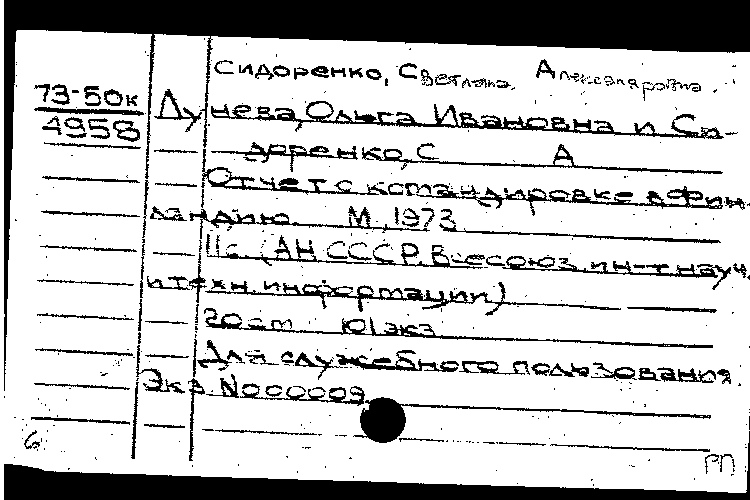 Сидоренко, Светлана Александровна.
73-50к
4958
Лунева, Ольга Ивановна и Си-
доренко, С А
Отчет о командировке в Фин-
ляндию. М., 1973.
11с. (АН СССР. Всесоюз. ин-т науч.
и техн. информации)
101 экз
Для служебного пользования
Экз. N000009
6
РП